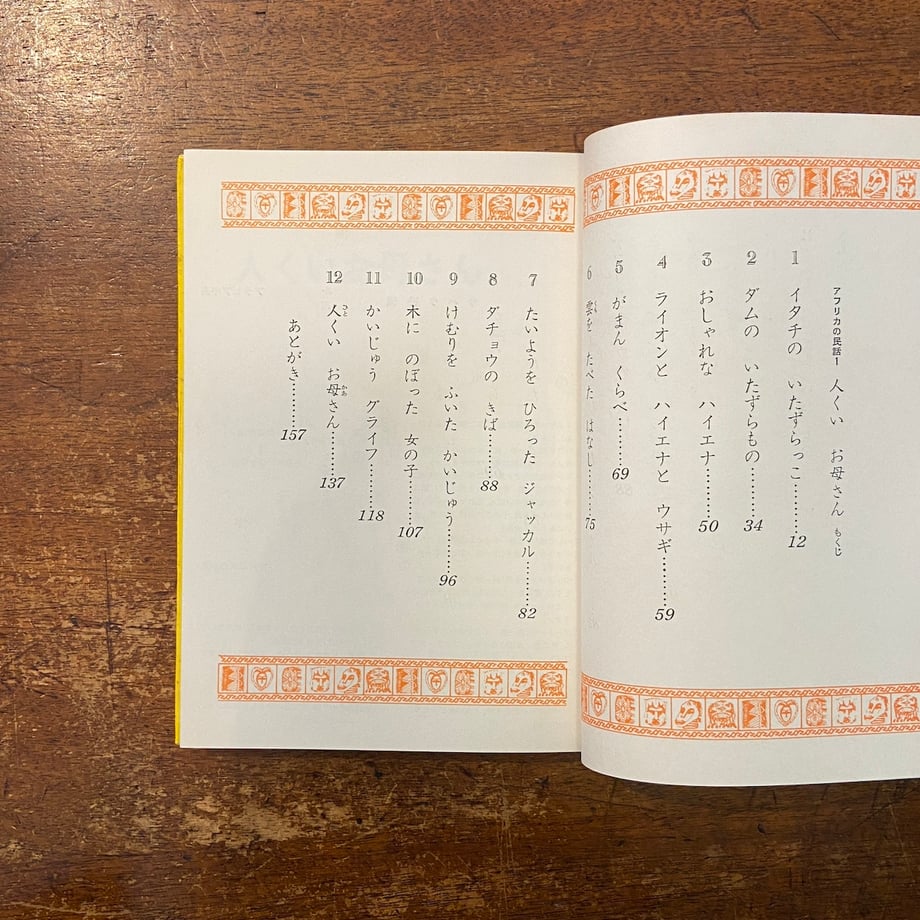 アフリカの民話1 人くい お母さん もくじ
1 イタチの いたずらっこ………12
2 ダムの いたずらもの………34
3 おしゃれな ハイエナ………50
4 ライオンと ハイエナと ウサギ………59
5 がまん くらべ………69
6 雲を たべた はなし………75
7 たいようを ひろった ジャッカル………82
8 ダチョウの きば………88
9 けむりを ふいた かいじゅう………96
10 木に のぼった 女の子………107
11 かいじゅう グライフ………118
12 人くい お母さん………137
あとがき………157